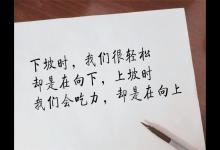 下坡时，我们很轻松
却是在向下，上坡时
我们会吃力，却是在向上